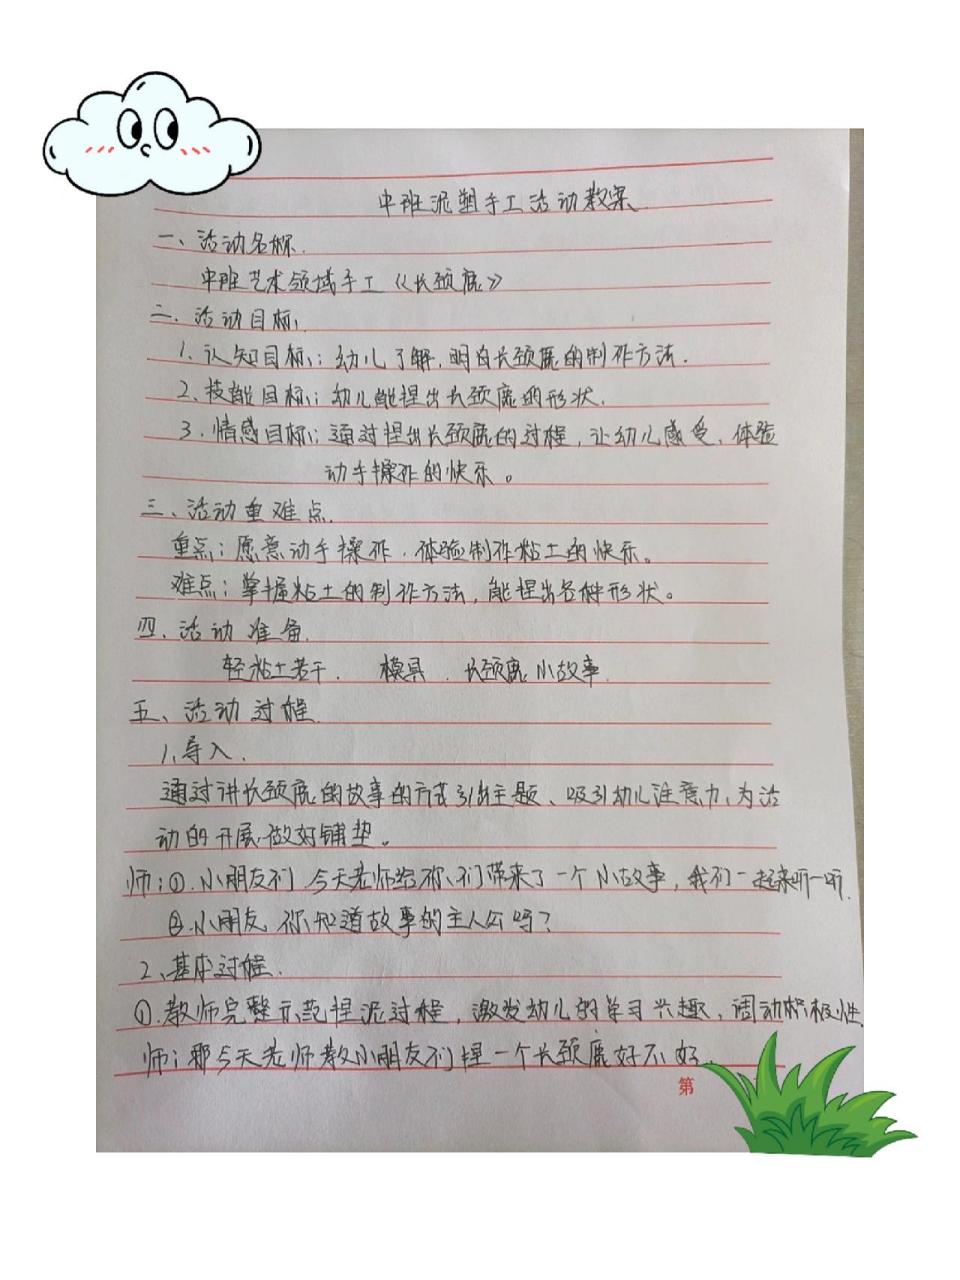 中班泥塑手工活动教案
一、活动名称
中班艺术领域手工《长颈鹿》
二、活动目标
1、认知目标：幼儿了解、明白长颈鹿的制作方法.
2、技能目标：幼儿能捏出长颈鹿的形状.
3、情感目标：通过捏出长颈鹿的过程，让幼儿感受、体验
动手操作的快乐。
三、活动重难点
重点：愿意动手操作、体验制作粘土的快乐。
难点：掌握粘土的制作方法，能捏出各种形状。
四、活动准备
轻粘土若干、模具、长颈鹿小故事
五、活动过程
1、导入.
通过讲长颈鹿的故事的方式引出主题、吸引幼儿注意力，为活
动的开展做好铺垫。
师：①.小朋友们，今天老师给你们带来了一个小故事，我们一起来听一听.
②.小朋友，你知道故事的主人公吗？
2、基本过程.
①.教师完整示范捏泥过程，激发幼儿的学习兴趣、调动积极性
师：那今天老师教小朋友们捏一个长颈鹿好不好.
第